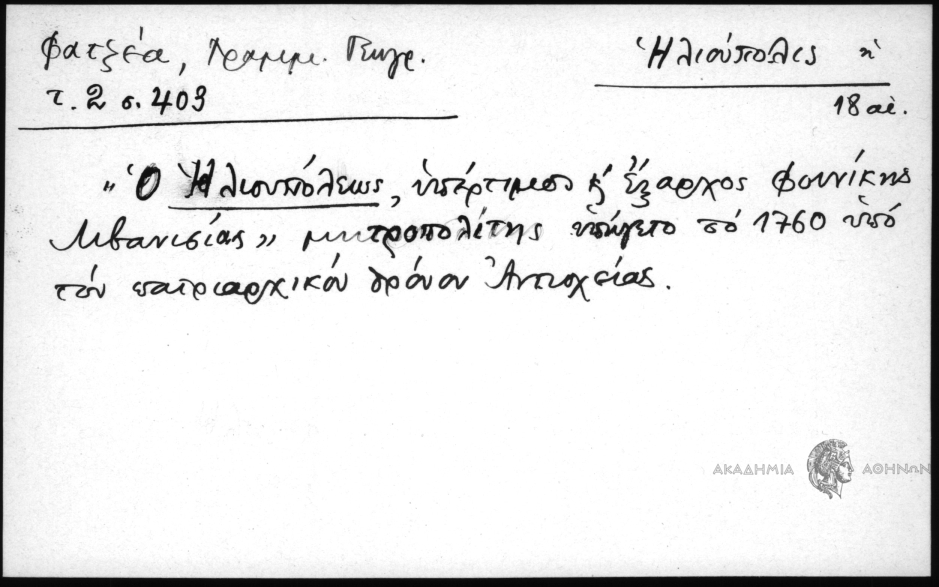 Φατζέα, Γραμμ. Γεωγρ.
τ. 2 σ. 403
Ἡλιούπολις ἡ
18 αἰ.
"Ὁ Ἡλιουπόλεως, ὑπέρτιμος κ' ἔξαρχος Φοινίκης
Λιβανισίας" μητροπολίτης ὑπήγετο τό 1760 ὑπό
τόν πατριαρχικόν θρόνον Ἀντιοχείας.
ΑΚΑΔΗΜΙΑ ΑΘΗΝΩΝ